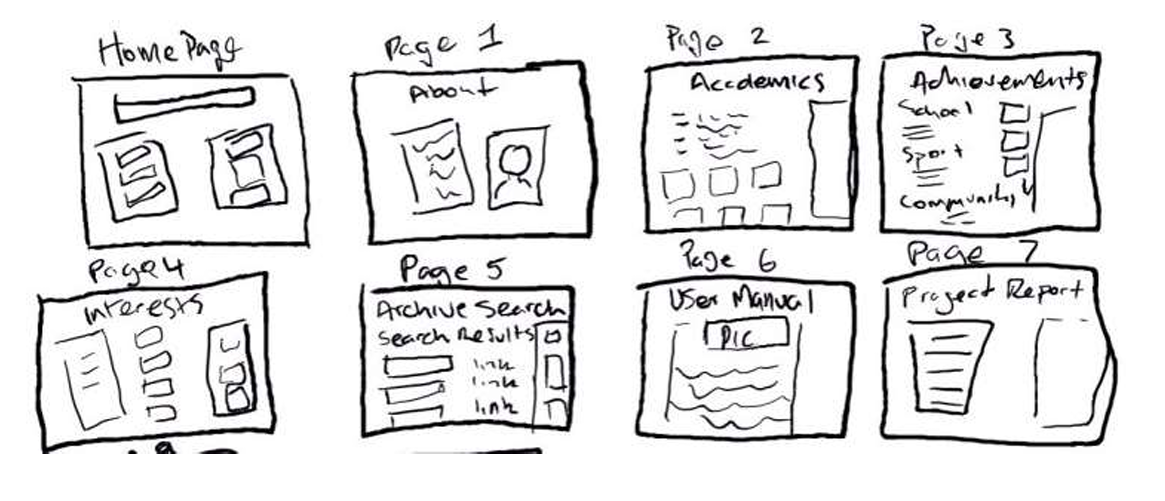 Home Page
Page 1
About
Page 2
Accdemics
Page 3
Achievements
School
Sport
Community
Page 4
Interests
Page 5
Archive Search
Search Results
link
link
link
Page 6
User Manual
Pic
Page 7
Project Report